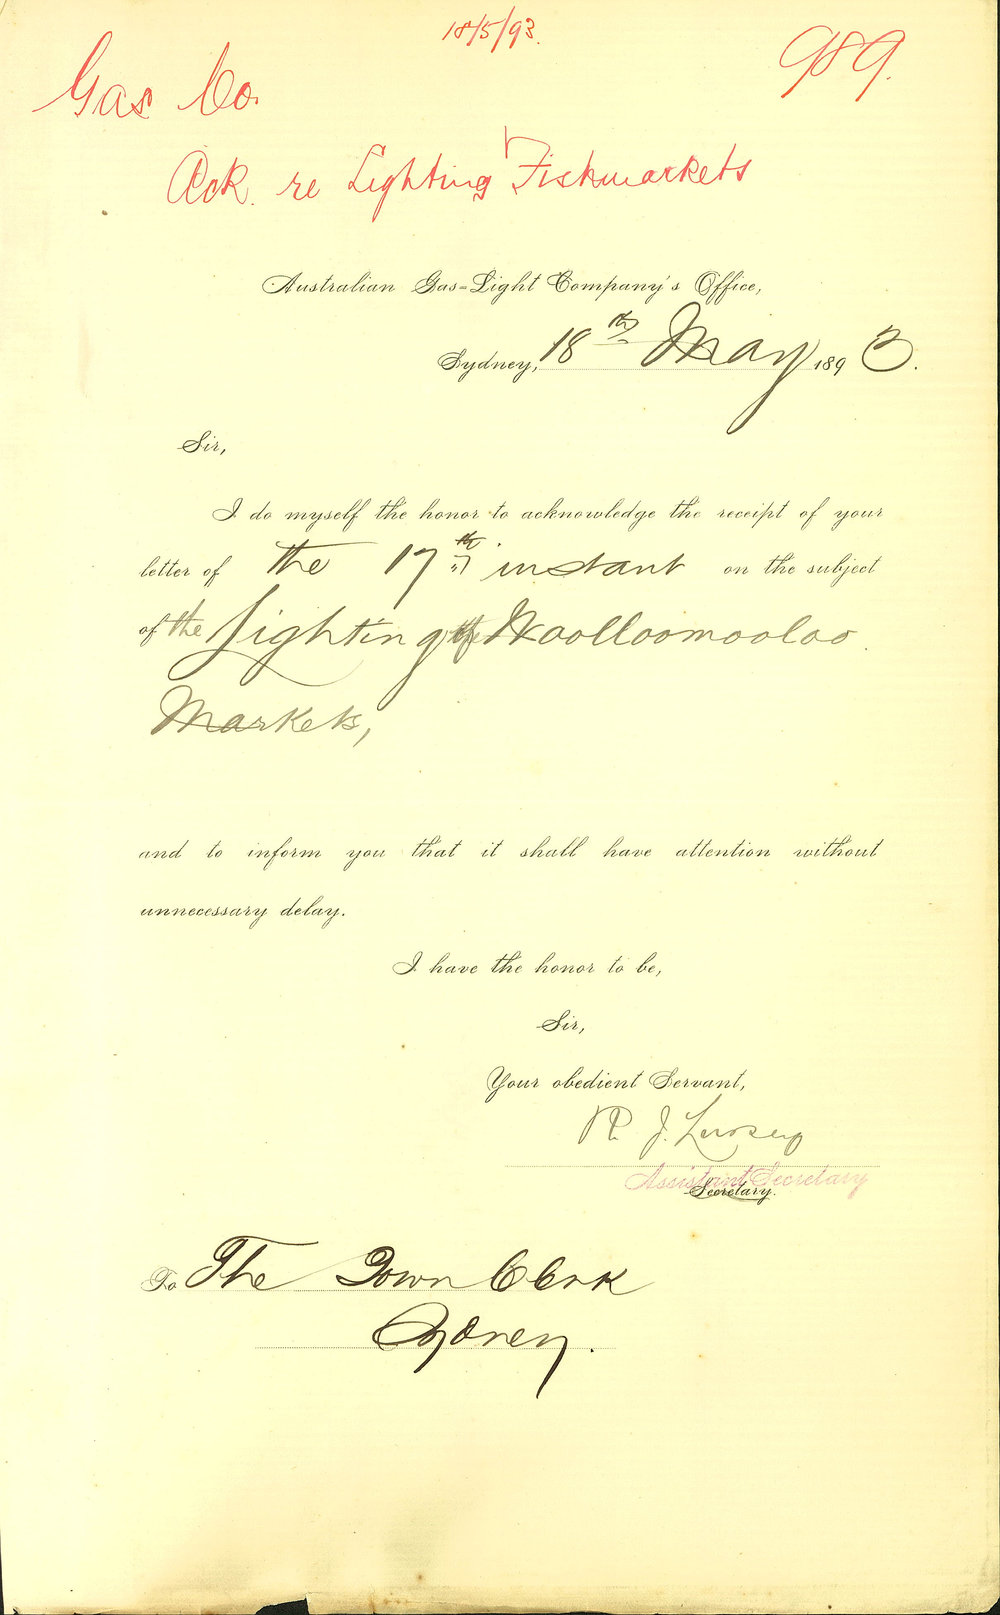 18/5/93.
989.
Gas Co.
Ack. re Lighting Fishmarkets
Australian Gas-Light Company's Office,
Sydney, 18th May 1893.
Sir,
I do myself the honor to acknowledge the receipt of your
letter of the 17th instant on the subject
of the Lighting of Woolloomooloo
Markets,
and to inform you that it shall have attention without
unnecessary delay.
I have the honor to be,
Sir,
Your obedient Servant,
R. J.
Assistant Secretary
Secretary.
To The Town Clerk
Sydney.